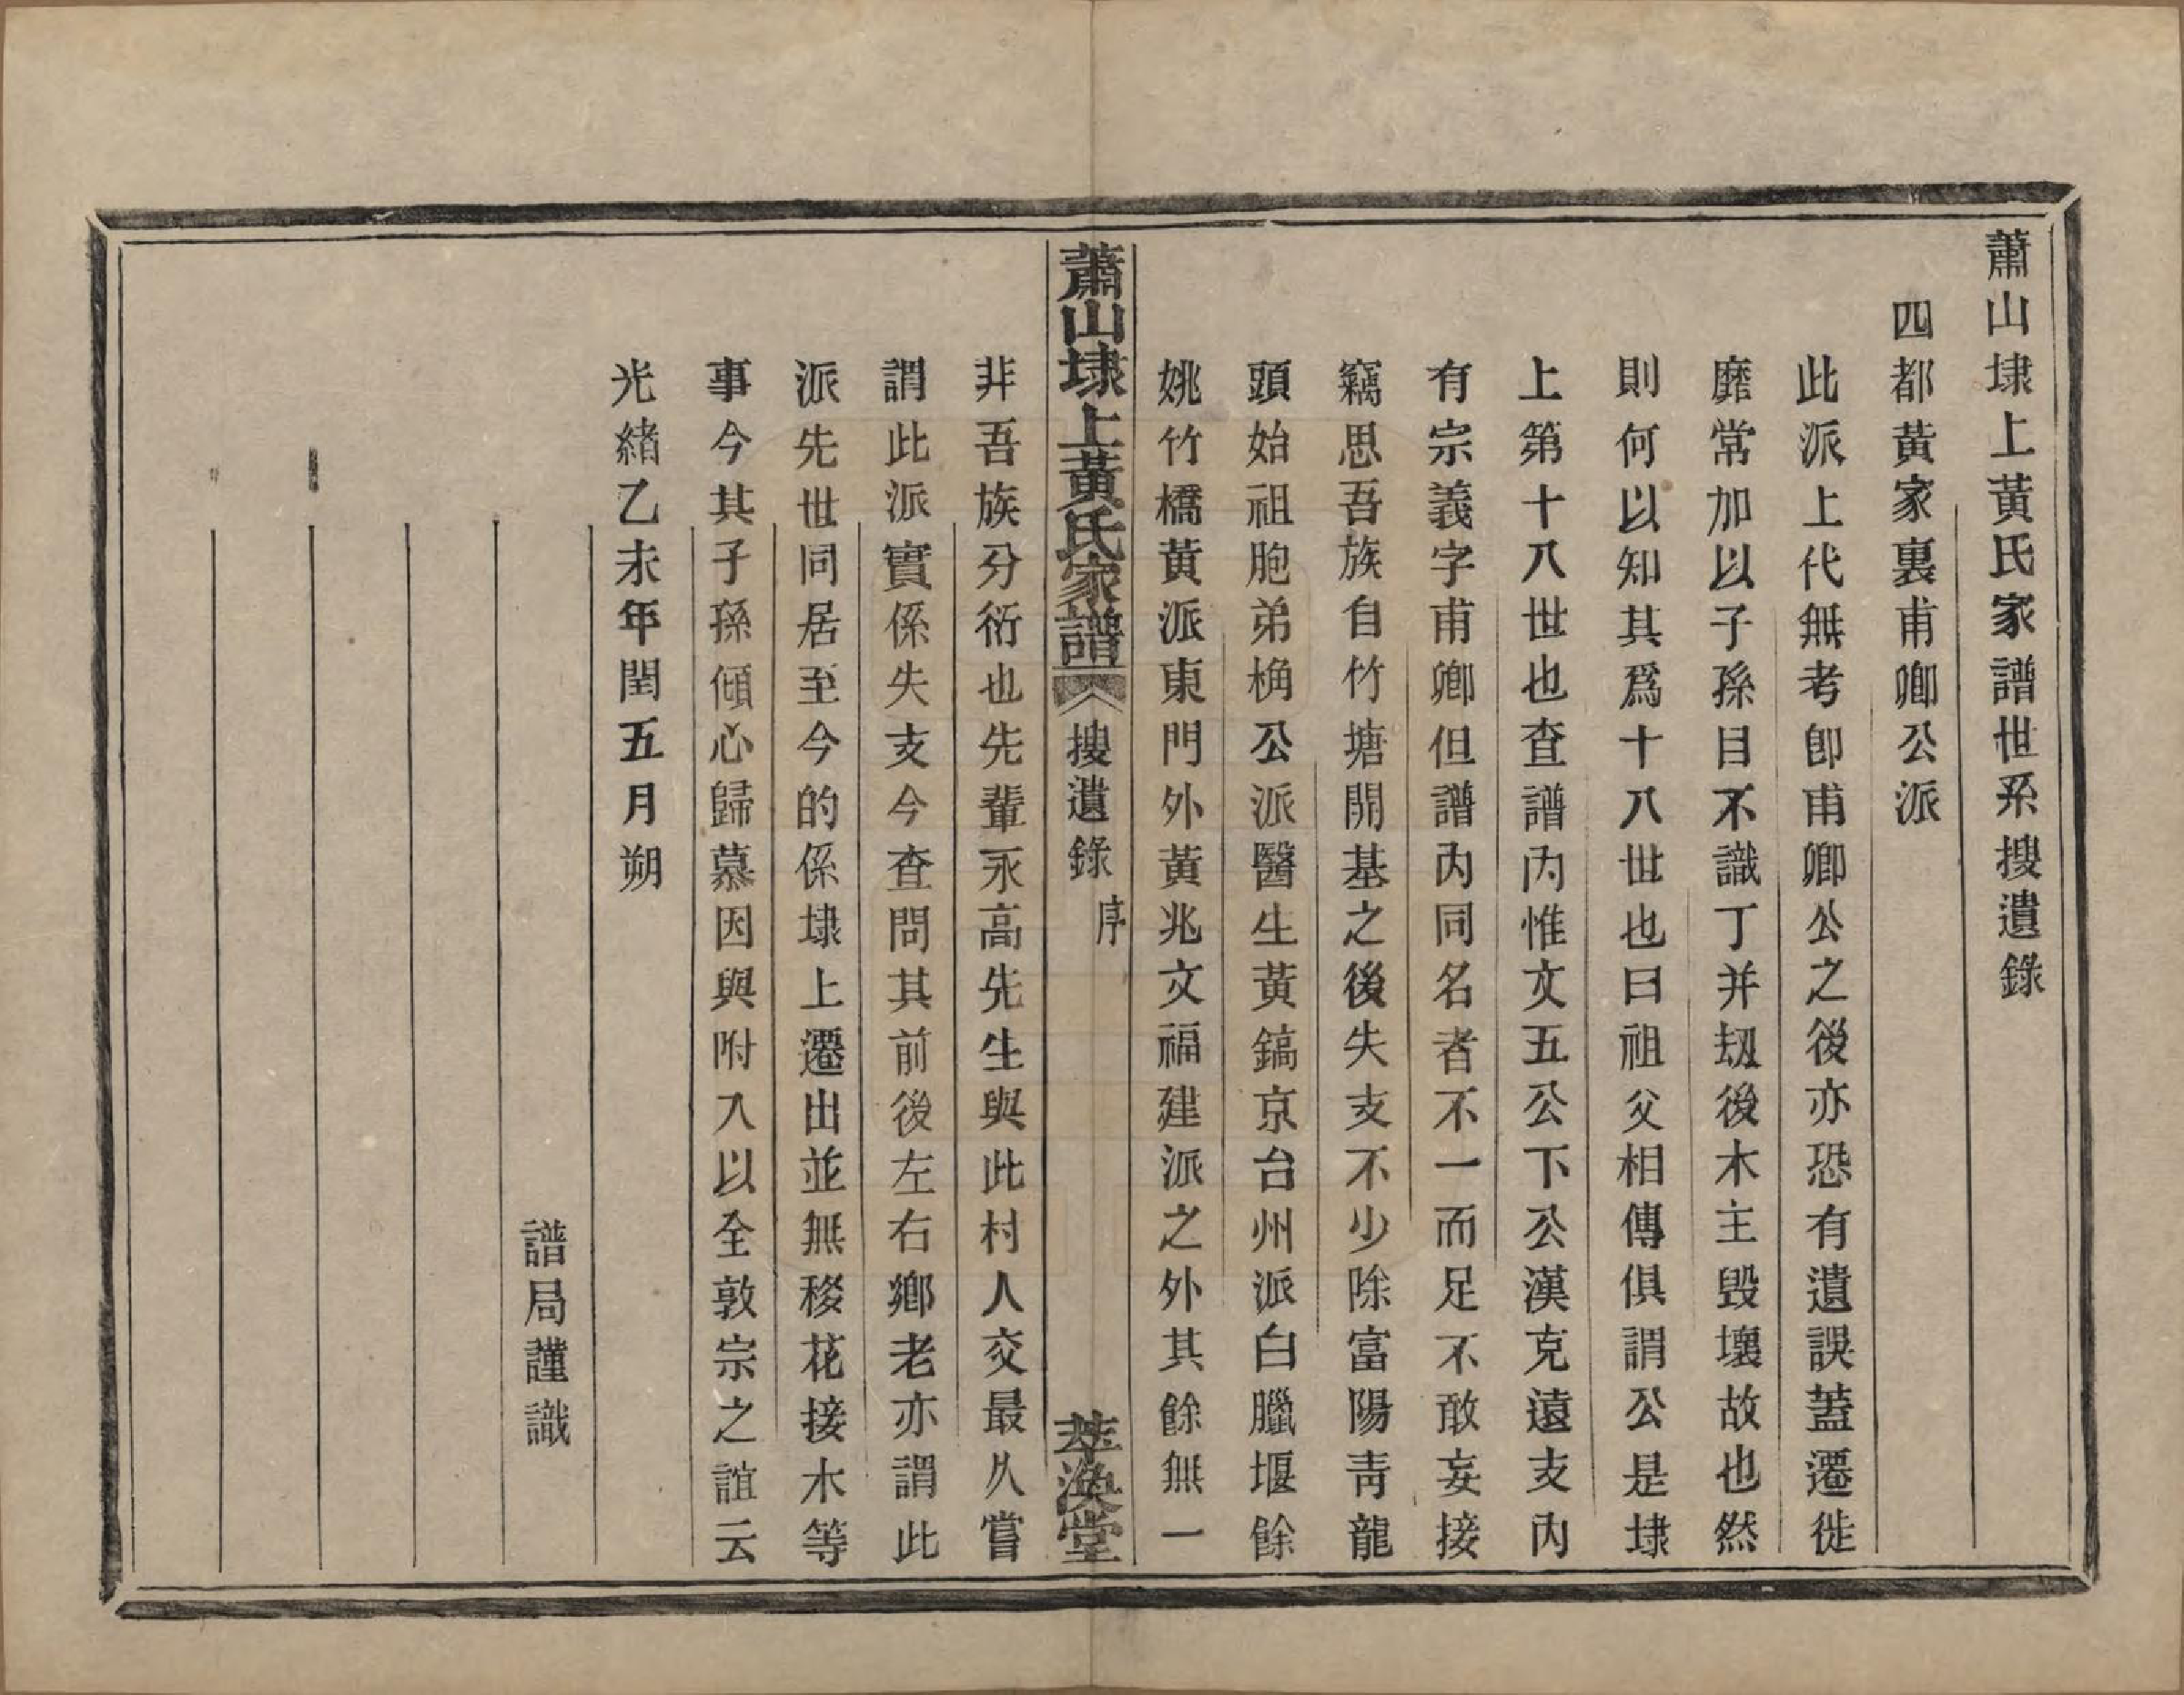 蕭山埭上黃氏家譜世系搜遺錄
四都黃家裏甫卿公派
此派上代無考卽甫卿公之後亦恐有遺誤蓋遷徙
靡常加以子孫目不識丁并刼後木主毀壞故也然
則何以知其爲十八世也曰祖父相傳俱謂公是埭
上第十八世也查譜內惟文五公下公漢克遠支內
有宗義字甫卿但譜內同名者不一而足不敢妄接
竊思吾族自竹塘開基之後失支不少除富陽青龍
頭始祖胞弟桷公派醫生黃鎬京台州派白臘堰餘
姚竹橋黃派東門外黃兆文福建派之外其餘無一
蕭山埭上黃氏家譜 搜遺錄 序 萃渙堂
非吾族分衍也先輩永高先生與此村人交最久嘗
謂此派實係失支今查問其前後左右鄉老亦謂此
派先世同居至今的係埭上遷出並無移花接木等
事今其子孫傾心歸慕因與附入以全敦宗之誼云
光緒乙未年閏五月朔
譜局謹識